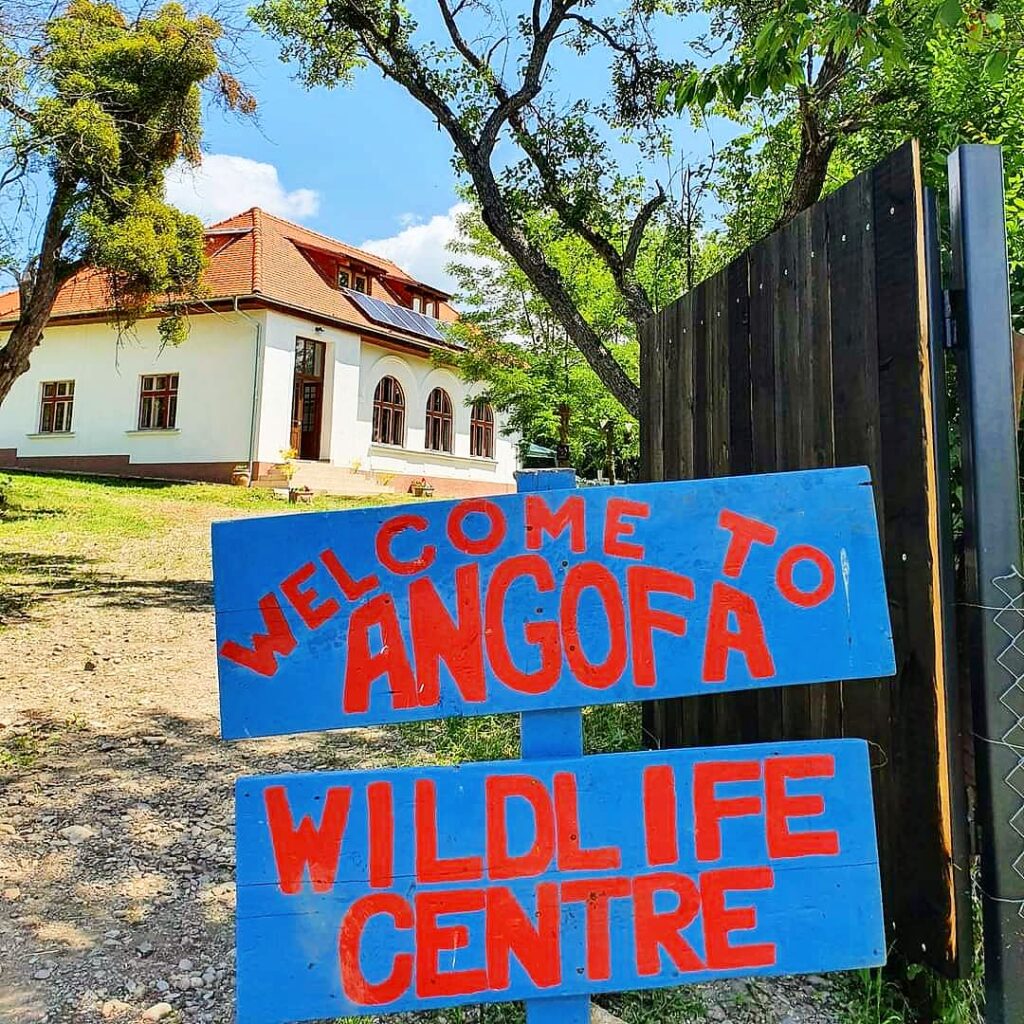 WELCOME TO
ANGOFA
WILDLIFE
CENTRE